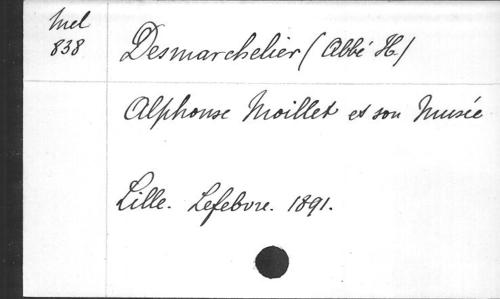 Mel
838
Desmarchelier (Abbé H)
Alphonse Moillet et son Musée
Lille. Lefebvre. 1891.